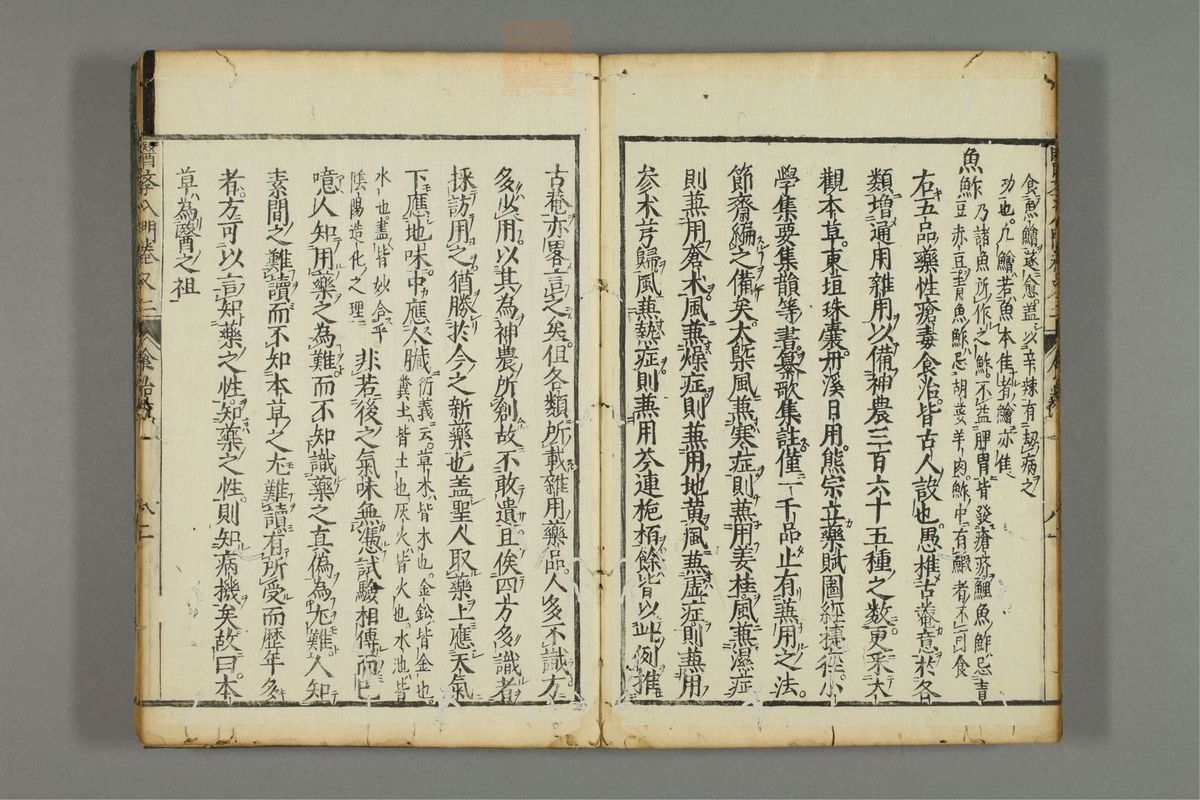 食魚鱠遂愈蓋以辛辣有刼病之
功也凡鱠若魚本佳者鱠亦佳
魚鮓
乃諸魚所作之鮓不益脾胃皆發瘡疥鯉魚鮓忌青
豆赤豆青魚鮓忌胡荽羊肉鮓中有鰕者不可食
右五品藥性瘡毒食治皆古人設也愚推古菴意於各
類增通用雜用以備神農三百六十五種之數更采大
觀本草東垣珠囊丹溪日用熊宗立藥賦圖經捷徑小
學集要集韻等書纂歌集註僅一千品止有兼用之法
節齋編之備矣大槩風兼寒症則兼用姜桂風兼濕症
則兼用蒼朮風兼燥症則兼用地黄風兼虛症則兼用
參朮芎歸風兼熱症則兼用芩連梔栢餘皆以此例推
古菴亦畧言之矣但各類所載雜用藥品人多不識方
多少用以其為神農所創故不敢遺且俟四方多識者
採訪用之猶勝於今之新藥也蓋聖人取藥上應天氣
下應地味中應人臟
衍義云草木皆木也金鈆皆金也
糞土皆土也灰火皆火也水池皆
水也盡皆妙合乎
陰陽造化之理
非若後之氣味無憑試驗相傳而已
噫人知用藥之為難而不知識藥之真偽為尤難人知
素間之難讀而不知本草之尤難讀有所受而歴年多
者方可以言知藥之性知藥之性則知病機矣故曰本
草為醫之祖